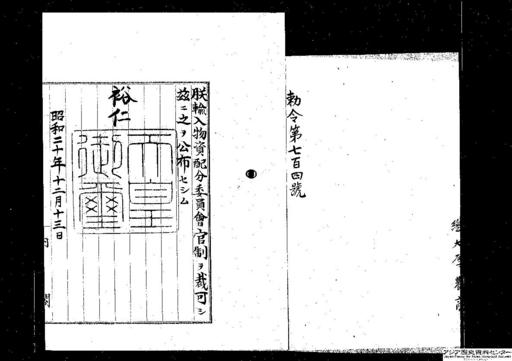 勅令第七百四號
朕輸入物資配分委員會官制ヲ裁可シ
茲ニ之ヲ公布セシム
裕仁
天皇
御璽
昭和二十年十二月十三日
内閣
アジア歴史資料センター
Japan Center for Asian Historical Records